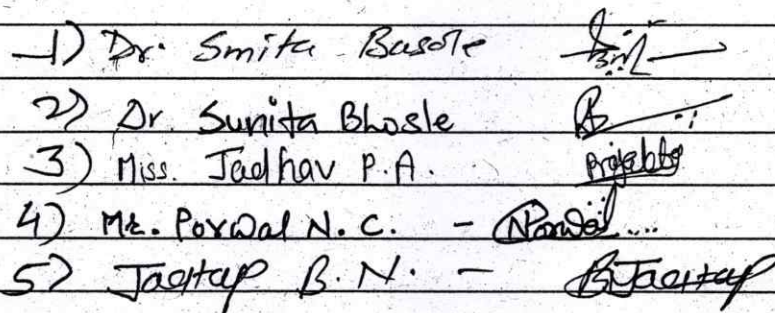 1) Dr. Smita Basole
2) Dr. Sunita Bhosle
3) Miss. Jadhav P.A.
4) Mr. Porwal N.C. - Porwal
5) Jagtap B.N. - BJagtap